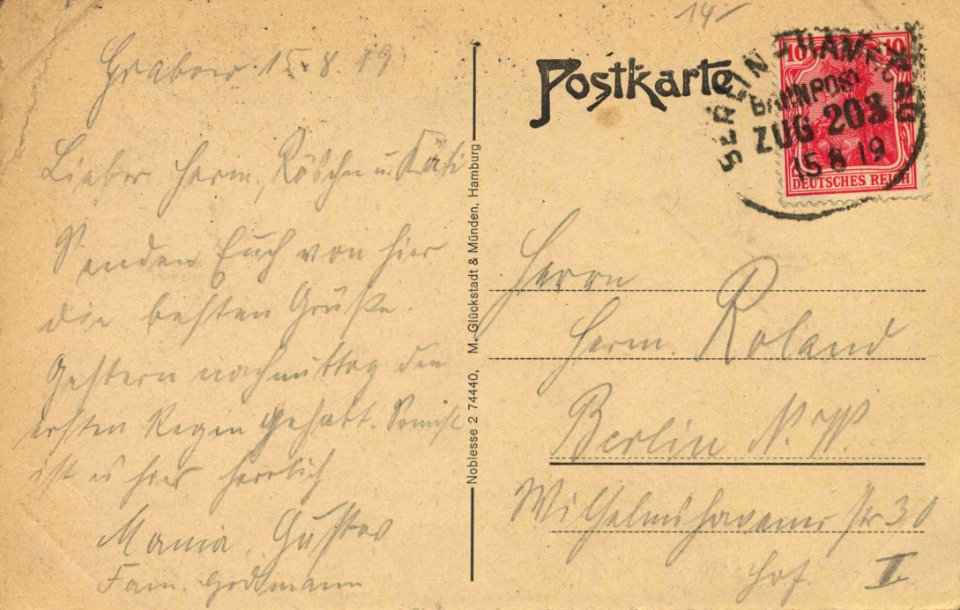 14-
Grabow 15.8.19.
Lieber Herm., Röschen u. Käti
Senden Euch von hier
die besten Grüße.
Gestern nachmittag den
ersten Regen gehabt. Sonst
ist es hier herrlich
Mama, Gustav
Fam. Grotmann
Noblesse 2 74440, M. Glückstadt & Münden, Hamburg
Postkarte
BERLIN-HAMBURG
BAHNPOST
ZUG 203
15 8 19
10 10
DEUTSCHES REICH
Herrn
Herm. Roland
Berlin N.W.
Wilhelmshavener Str 30
Hof. I.